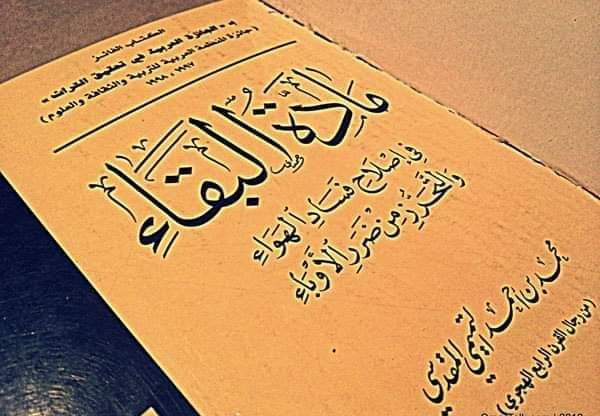 الكتاب الفائز
بـ « الجائزة العربية في تحقيق التراث »
(جائزة المنظمة العربية للتربية والثقافة والعلوم)
١٩٩٧ ، ١٩٩٨
مَادَّةُ البَقَاءِ
فِي إِصْلَاحِ فَسَادِ الهَوَاءِ
وَالتَّحَرُّزِ مِنْ ضَرَرِ الأَوْبَاءِ
مُحَمَّد بن أَحمد التميمي المقدسي
(من رجال القرن الرابع الهجري)